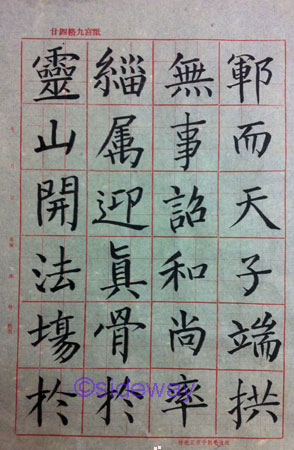 廿四格九宮紙
鄆而天子端拱
無事詔和尚率
緇属迎眞骨於
靈山開法塲於
©sideway